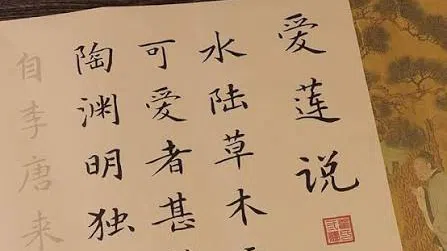 爱莲说
水陆草木
可爱者甚
陶渊明独
自李唐来